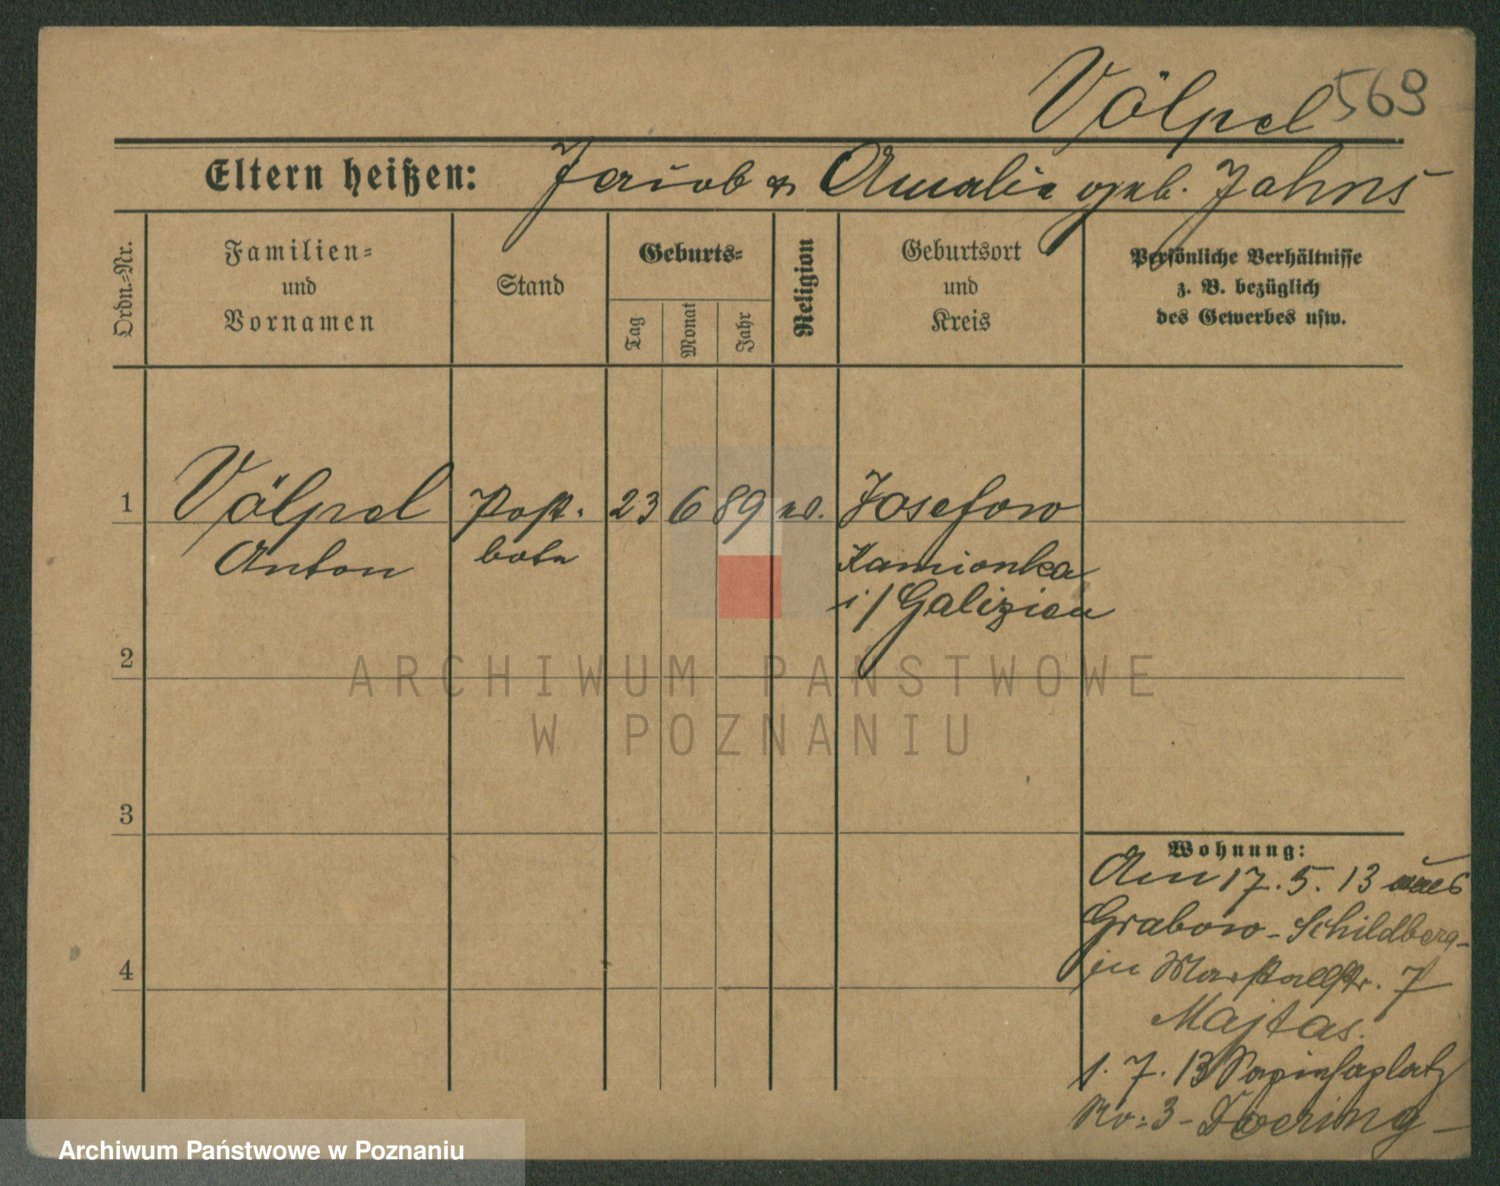 Völpel 569
Eltern heißen: Jacob & Amalie geb. Jahns
Ordn.-Nr.
Familien-
und
Vornamen
Stand
Geburts-
Tag
Monat
Jahr
Religion
Geburtsort
und
Kreis
Persönliche Verhältnisse
z. B. bezüglich
des Gewerbes usw.
1 Völpel Post- 23 6 89 Josefow
Anton bote Kamionka
i/Galizien
2
ARCHIWUM PAŃSTWOWE
W POZNANIU
3
Wohnung:
Am 17.5.13 aus
Grabow-Schildberg-
in Marstallstr. 7
Majtas.
1.7.13 Sapiehaplatz
No: 3 - Doering -
4
Archiwum Państwowe w Poznaniu